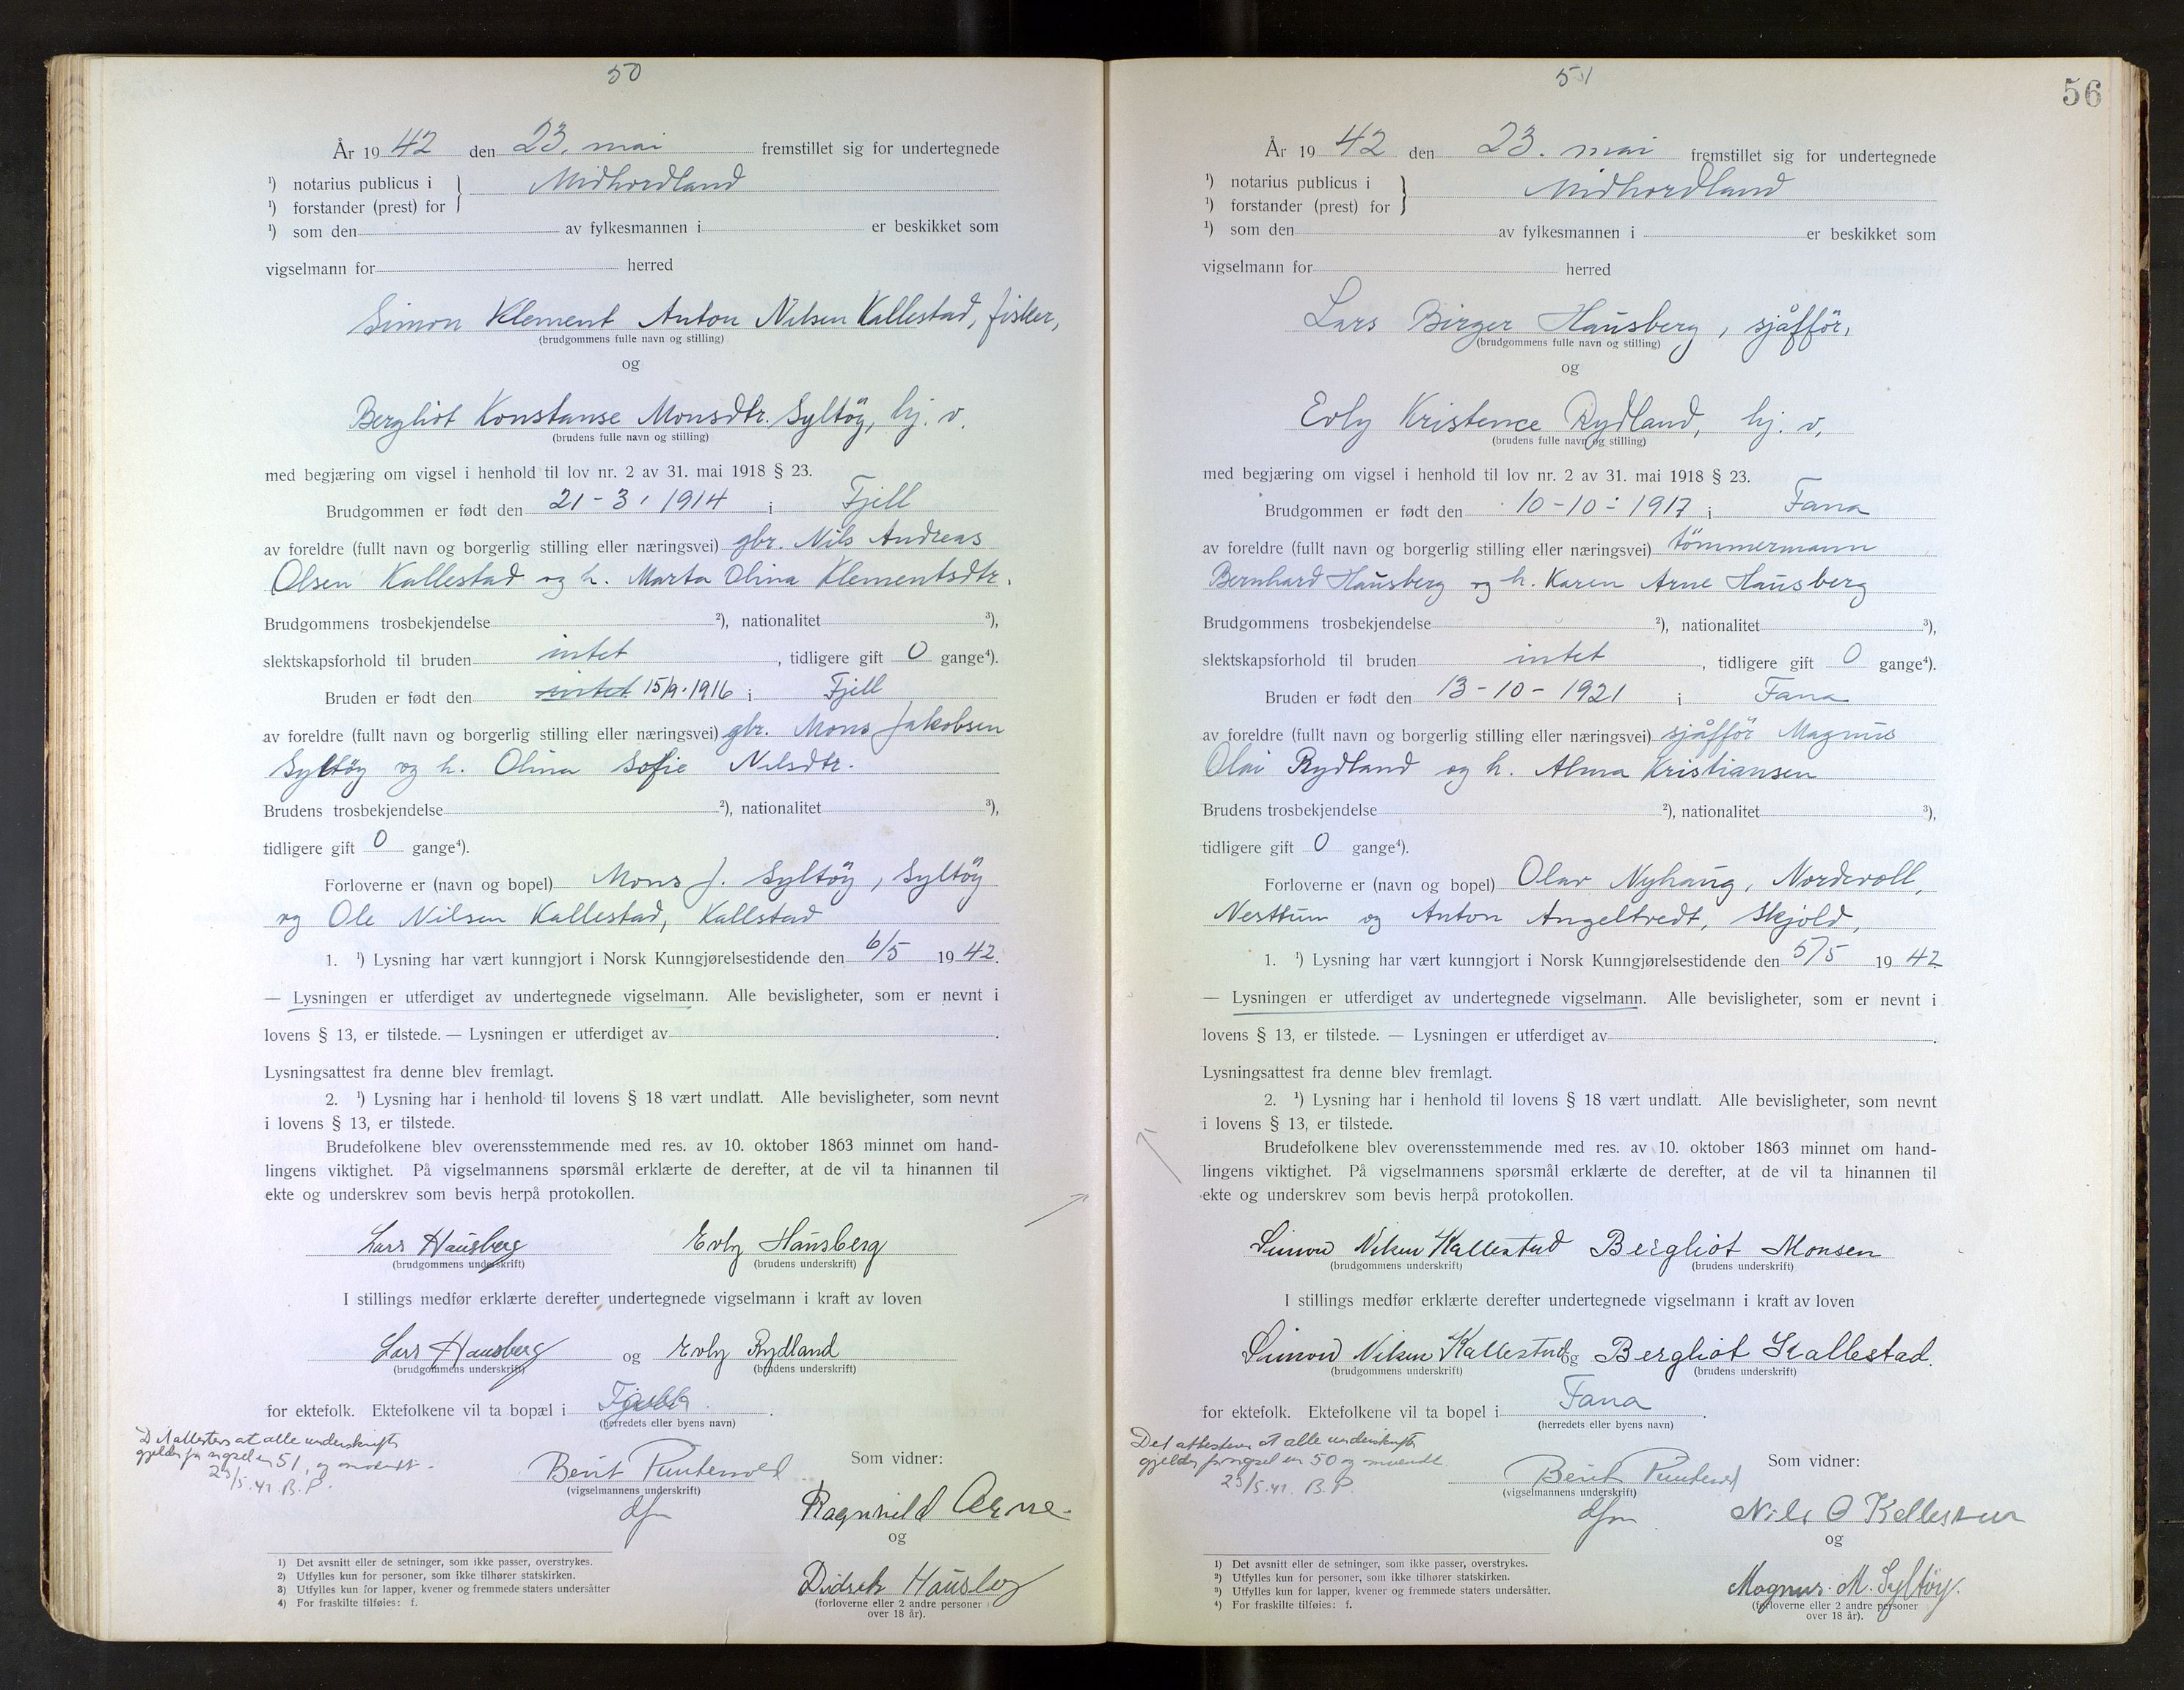 50
År 1942 den 23. mai fremstillet sig for undertegnede
¹) notarius publicus i } Midhordland
¹) forstander (prest) for
¹) som den av fylkesmannen i er beskikket som
vigselmann for herred
Simon Klement Anton Nilsen Kallestad, fisker,
(brudgommens fulle navn og stilling)
og
Bergliot Konstanse Monsdtr. Syltöy, hj. v.
(brudens fulle navn og stilling)
med begjæring om vigsel i henhold til lov nr. 2 av 31. mai 1918 § 23.
Brudgommen er født den 21-3, 1914 i Fjell
av foreldre (fullt navn og borgerlig stilling eller næringsvei) gbr. Nils Andreas
Olsen Kallestad og h. Marta Olina Klementsdtr.
Brudgommens trosbekjendelse ²), nationalitet ³),
slektskapsforhold til bruden intet, tidligere gift 0 gange⁴).
Bruden er født den intet 15/9.1916 i Fjell
av foreldre (fullt navn og borgerlig stilling eller næringsvei) gbr. Mons Jakobsen
Syltöy og h. Olina Sofie Nilsdtr.
Brudens trosbekjendelse ²), nationalitet ³),
tidligere gift 0 gange⁴).
Forloverne er (navn og bopel) Mons J. Syltöy, Syltöy
og Ole Nilsen Kallestad, Kallstad
1. ¹) Lysning har vært kunngjort i Norsk Kunngjørelsestidende den 6/5 1942.
— Lysningen er utferdiget av undertegnede vigselmann. Alle bevisligheter, som er nevnt i
lovens § 13, er tilstede. — Lysningen er utferdiget av .
Lysningsattest fra denne blev fremlagt.
2. ¹) Lysning har i henhold til lovens § 18 vært undlatt. Alle bevisligheter, som nevnt
i lovens § 13, er tilstede.
Brudefolkene blev overensstemmende med res. av 10. oktober 1863 minnet om hand-
lingens viktighet. På vigselmannens spørsmål erklærte de derefter, at de vil ta hinannen til
ekte og underskrev som bevis herpå protokollen.
Lars Haüsberg Evly Haüsberg
(brudgommens underskrift) (brudens underskrift)
I stillings medfør erklærte derefter undertegnede vigselmann i kraft av loven
Lars Hausberg og Evly Rydland
(brudgommens underskrift) (brudens underskrift)
for ektefolk. Ektefolkene vil ta bopæl i Fjell.
(herredets eller byens navn)
Det attesteres at alle underskrifter
gjelder for vigsel nr 51, og omvendt.
23/5.42. B.P.
Berit
(vigselmannens underskrift)
dfm
Som vidner:
Ragnhild Arne
og
Didrik Hausberg
(forloverne eller 2 andre personer
over 18 år).
1) Det avsnitt eller de setninger, som ikke passer, overstrykes.
2) Utfylles kun for personer, som ikke tilhører statskirken.
3) Utfylles kun for lapper, kvener og fremmede staters undersåtter
4) For fraskilte tilføies: f.
51
56
År 1942 den 23. mai fremstillet sig for undertegnede
¹) notarius publicus i } Midhordland
¹) forstander (prest) for
¹) som den av fylkesmannen i er beskikket som
vigselmann for herred
Lars Birger Haüsberg, sjåfför,
(brudgommens fulle navn og stilling)
og
Evly Kristence Rydland, hj. v.
(brudens fulle navn og stilling)
med begjæring om vigsel i henhold til lov nr. 2 av 31. mai 1918 § 23.
Brudgommen er født den 10-10-1917 i Fana
av foreldre (fullt navn og borgerlig stilling eller næringsvei) tömmermann
Bernhard Haüsberg og h. Karen Arne Haüsberg
Brudgommens trosbekjendelse ²), nationalitet ³),
slektskapsforhold til bruden intet, tidligere gift 0 gange⁴).
Bruden er født den 13-10-1921 i Fana
av foreldre (fullt navn og borgerlig stilling eller næringsvei) sjåfför Magnus
Olai Rydland og h. Alma Kristiansen
Brudens trosbekjendelse ²), nationalitet ³),
tidligere gift 0 gange⁴).
Forloverne er (navn og bopel) Olav Nyhaug, Nordvoll,
Nesttun og Anton Angeltvedt, Skjold,
1. ¹) Lysning har vært kunngjort i Norsk Kunngjørelsestidende den 5/5 1942
— Lysningen er utferdiget av undertegnede vigselmann. Alle bevisligheter, som er nevnt i
lovens § 13, er tilstede. — Lysningen er utferdiget av .
Lysningsattest fra denne blev fremlagt.
2. ¹) Lysning har i henhold til lovens § 18 vært undlatt. Alle bevisligheter, som nevnt
i lovens § 13, er tilstede.
Brudefolkene blev overensstemmende med res. av 10. oktober 1863 minnet om hand-
lingens viktighet. På vigselmannens spørsmål erklærte de derefter, at de vil ta hinannen til
ekte og underskrev som bevis herpå protokollen.
Simon Nilsen Kallestad Bergliot Monsen
(brudgommens underskrift) (brudens underskrift)
I stillings medfør erklærte derefter undertegnede vigselmann i kraft av loven
Simon Nilsen Kallestad og Bergliot Kallestad.
(brudgommens underskrift) (brudens underskrift)
for ektefolk. Ektefolkene vil ta bopel i Fana.
(herredets eller byens navn)
Det attesteres at alle underskrifter
gjelder for vigsel nr 50 og omvendt.
23/5.42. B.P.
Berit
(vigselmannens underskrift)
dfm
Som vidner:
Nils O Kallestad
og
Magnus. M. Syltöy.
(forloverne eller 2 andre personer
over 18 år).
1) Det avsnitt eller de setninger, som ikke passer, overstrykes.
2) Utfylles kun for personer, som ikke tilhører statskirken.
3) Utfylles kun for lapper, kvener og fremmede staters undersåtter.
4) For fraskilte tilføies: f.